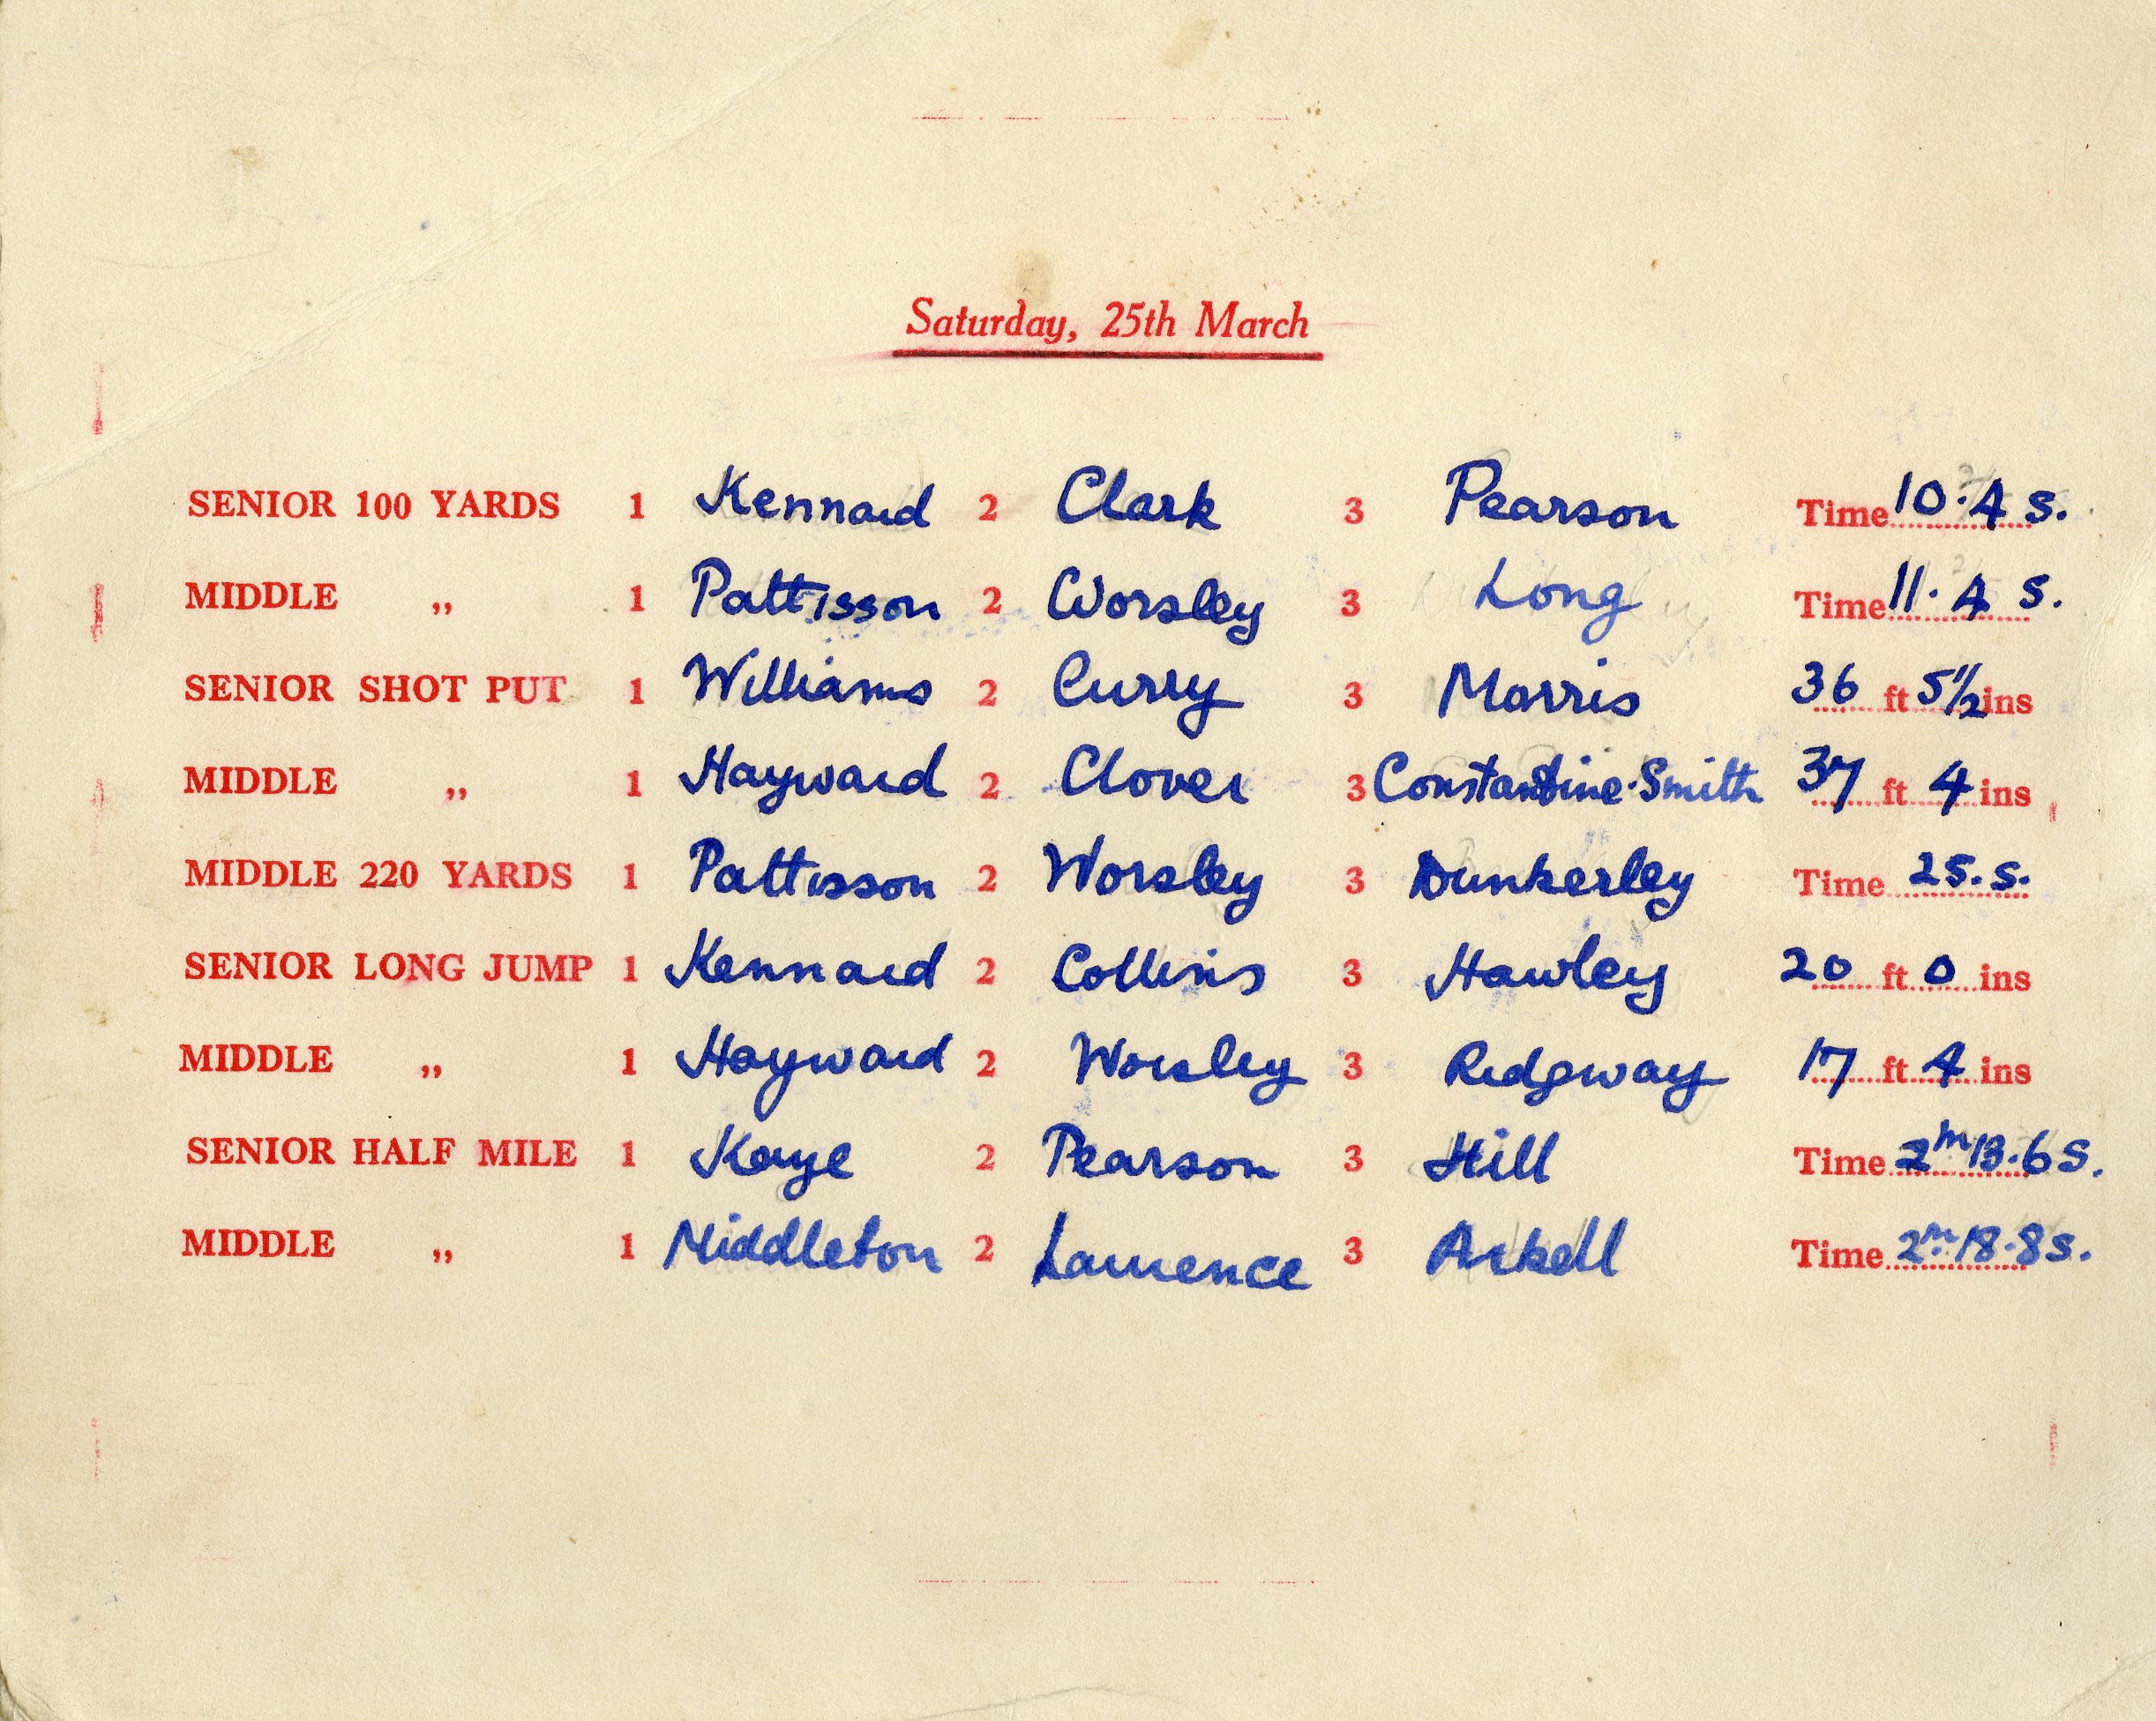 Saturday, 25th March
SENIOR 100 YARDS 1 Kennard 2 Clark 3 Pearson Time 10.4 s.
MIDDLE ,, 1 Pattisson 2 Worsley 3 Long Time 11.4 s.
SENIOR SHOT PUT 1 Williams 2 Curry 3 Morris 36 ft 5½ ins
MIDDLE ,, 1 Hayward 2 Clover 3 Constantine-Smith 37 ft 4 ins
MIDDLE 220 YARDS 1 Pattisson 2 Worsley 3 Dunkerley Time 25.s.
SENIOR LONG JUMP 1 Kennard 2 Collins 3 Hawley 20 ft 0 ins
MIDDLE ,, 1 Hayward 2 Worsley 3 Ridgway 17 ft 4 ins
SENIOR HALF MILE 1 Kaye 2 Pearson 3 Hill Time 2m 13.6 s.
MIDDLE ,, 1 Middleton 2 Laurence 3 Arkell Time 2m 18.8 s.